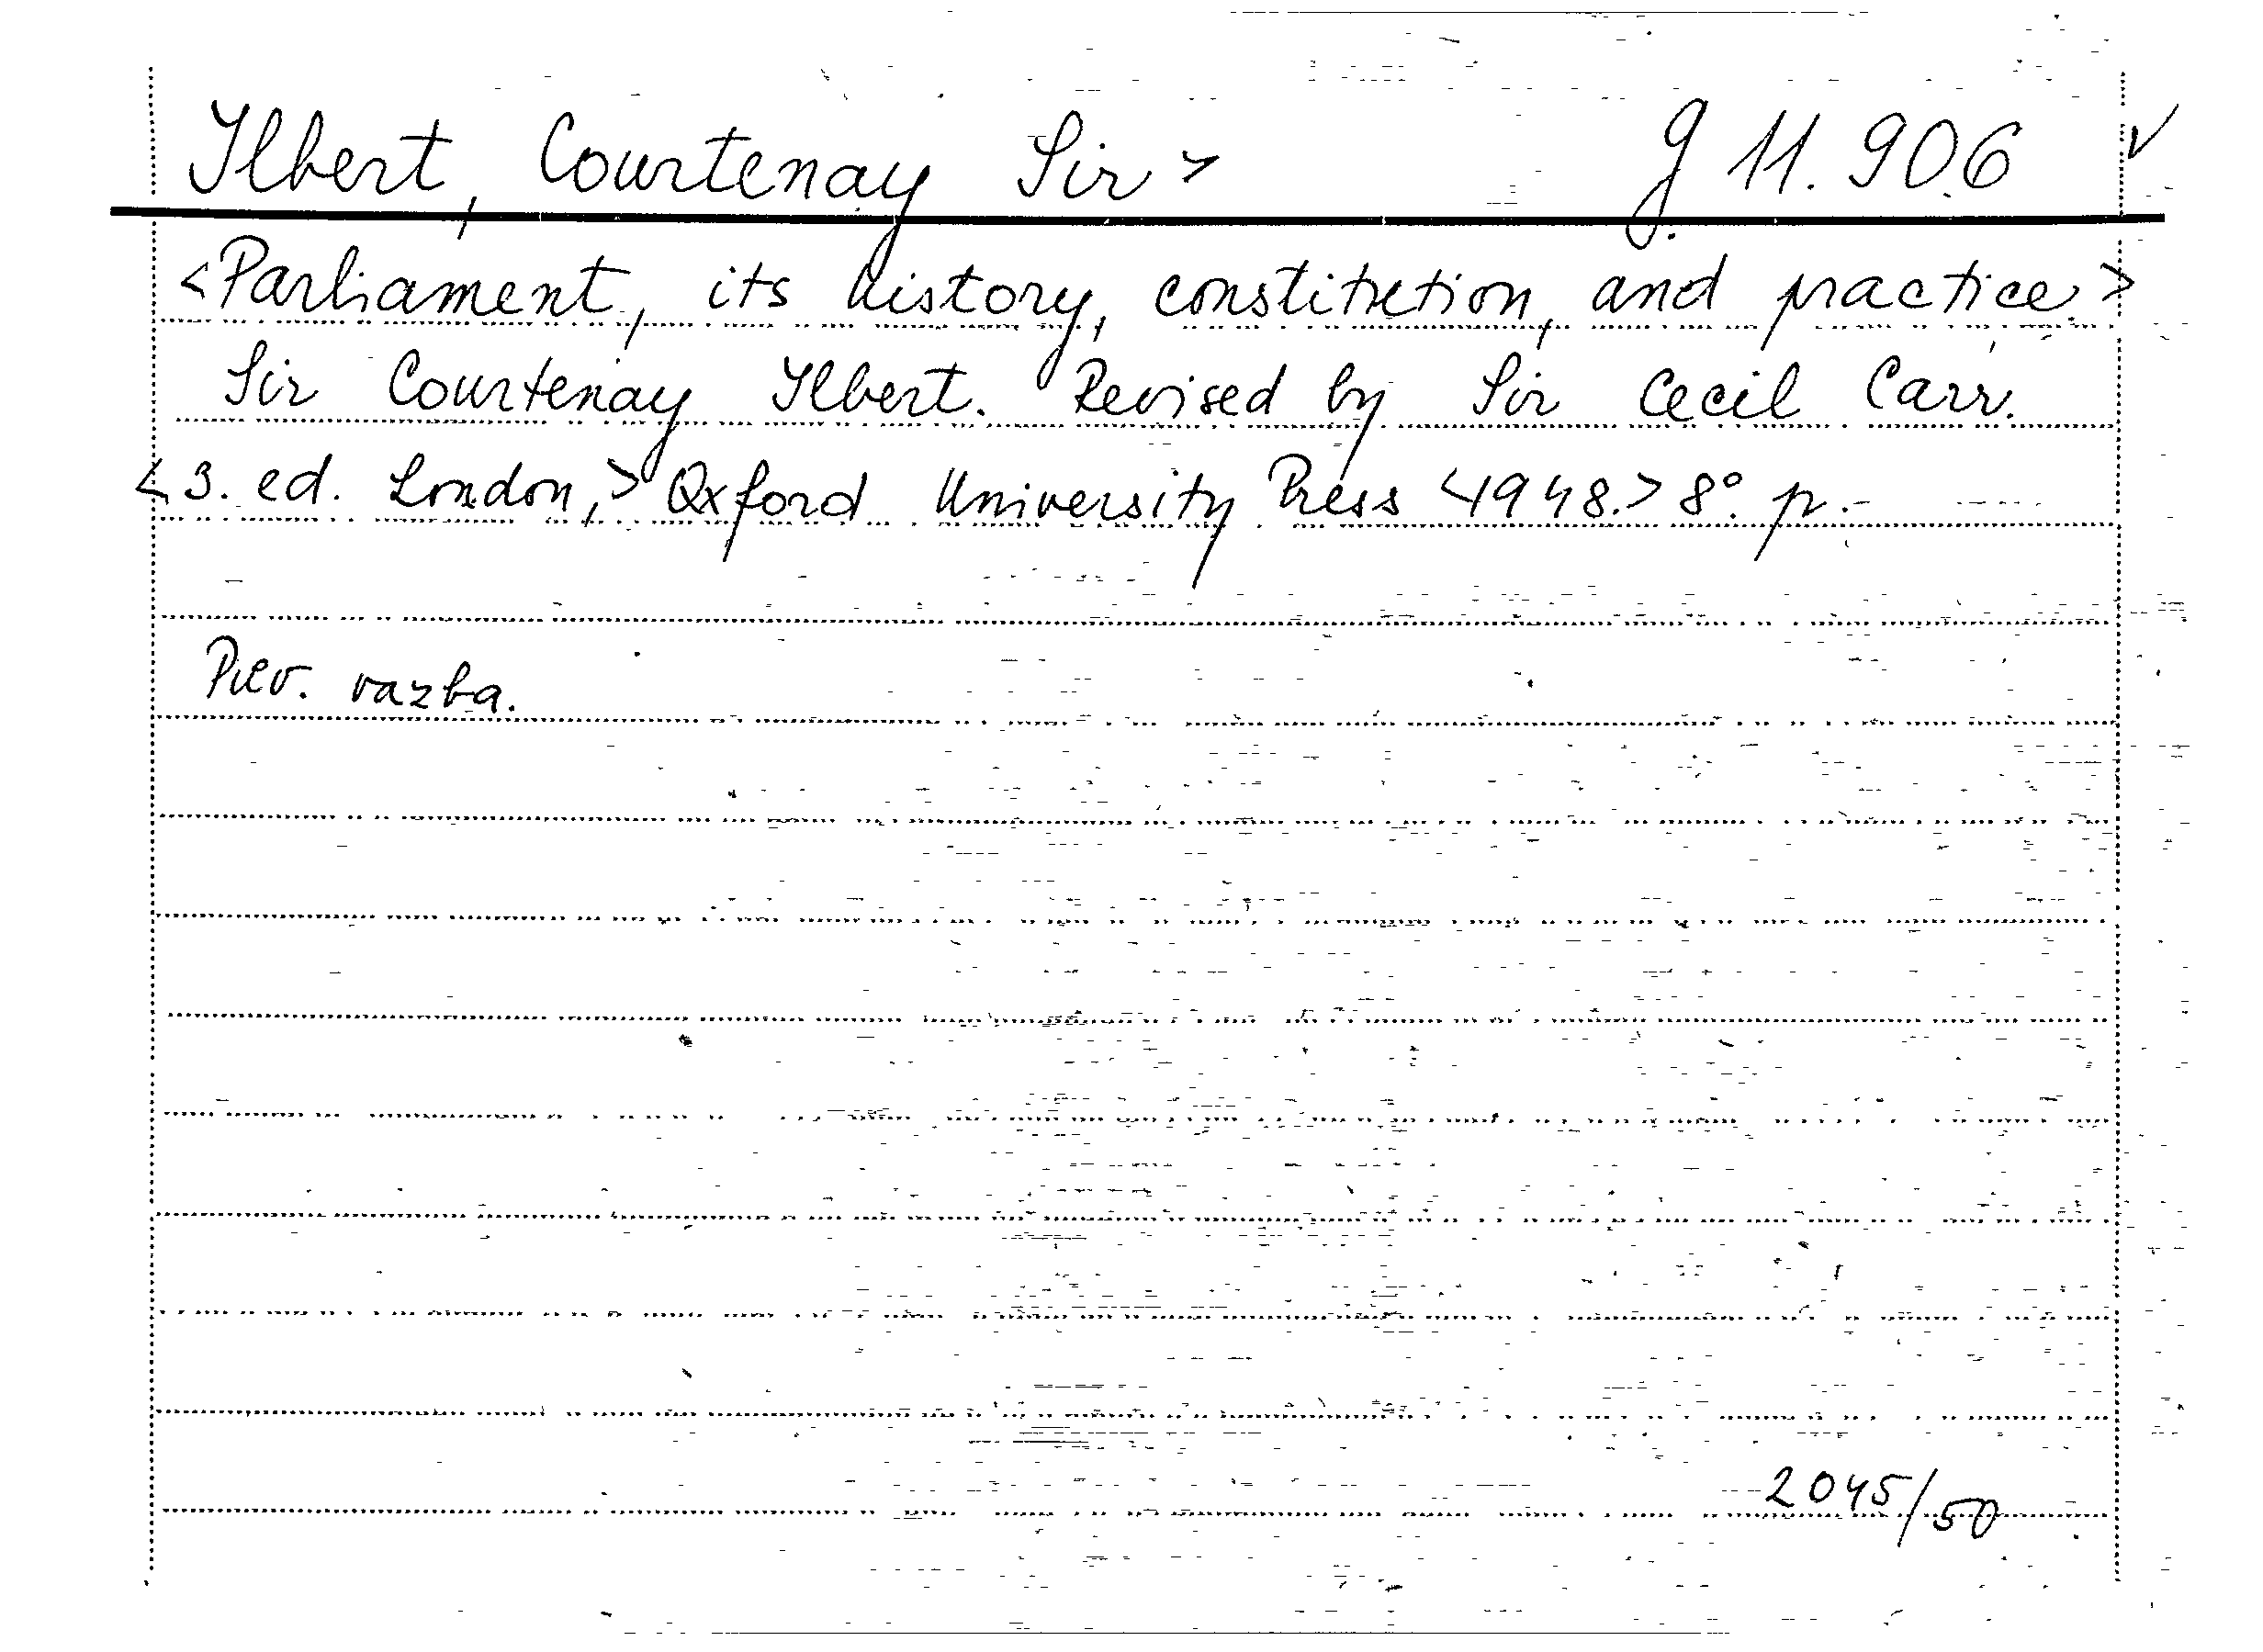 Ilbert, Courtenay Sir > g 11.906 √
<Parliament, its history, constitution, and practice.>
Sir Courtenay Ilbert. Revised by Sir Cecil Carr.
<3. ed. London,> Oxford University Press <1948.> 8°. p.-
Pův. vazba.
2045/50